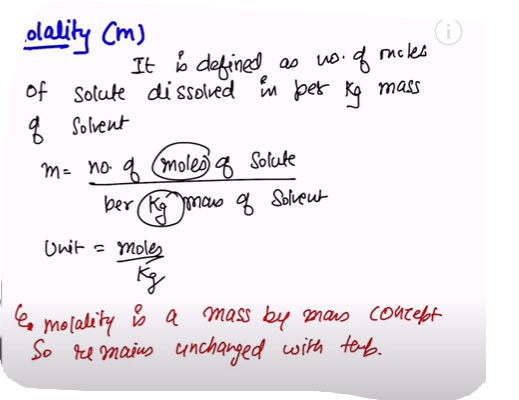 olality (m)
It is defined as no. of moles
of solute dissolved in per Kg mass
of Solvent
m= no. of moles of Solute
per Kg mass of Solvent
Unit = moles
Kg
molality is a mass by mass concept
So remains unchanged with temp.